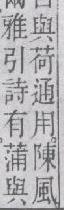 與荷通用陳風
雅引詩有蒲與